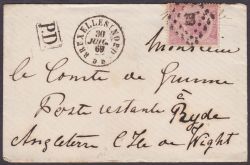 P.D.
BRUXELLES (NORD)
30
JUIL
69
Monsieur
le Comte de Grunne
Poste restante à Ryde
Angleterre L'Ile de Wight